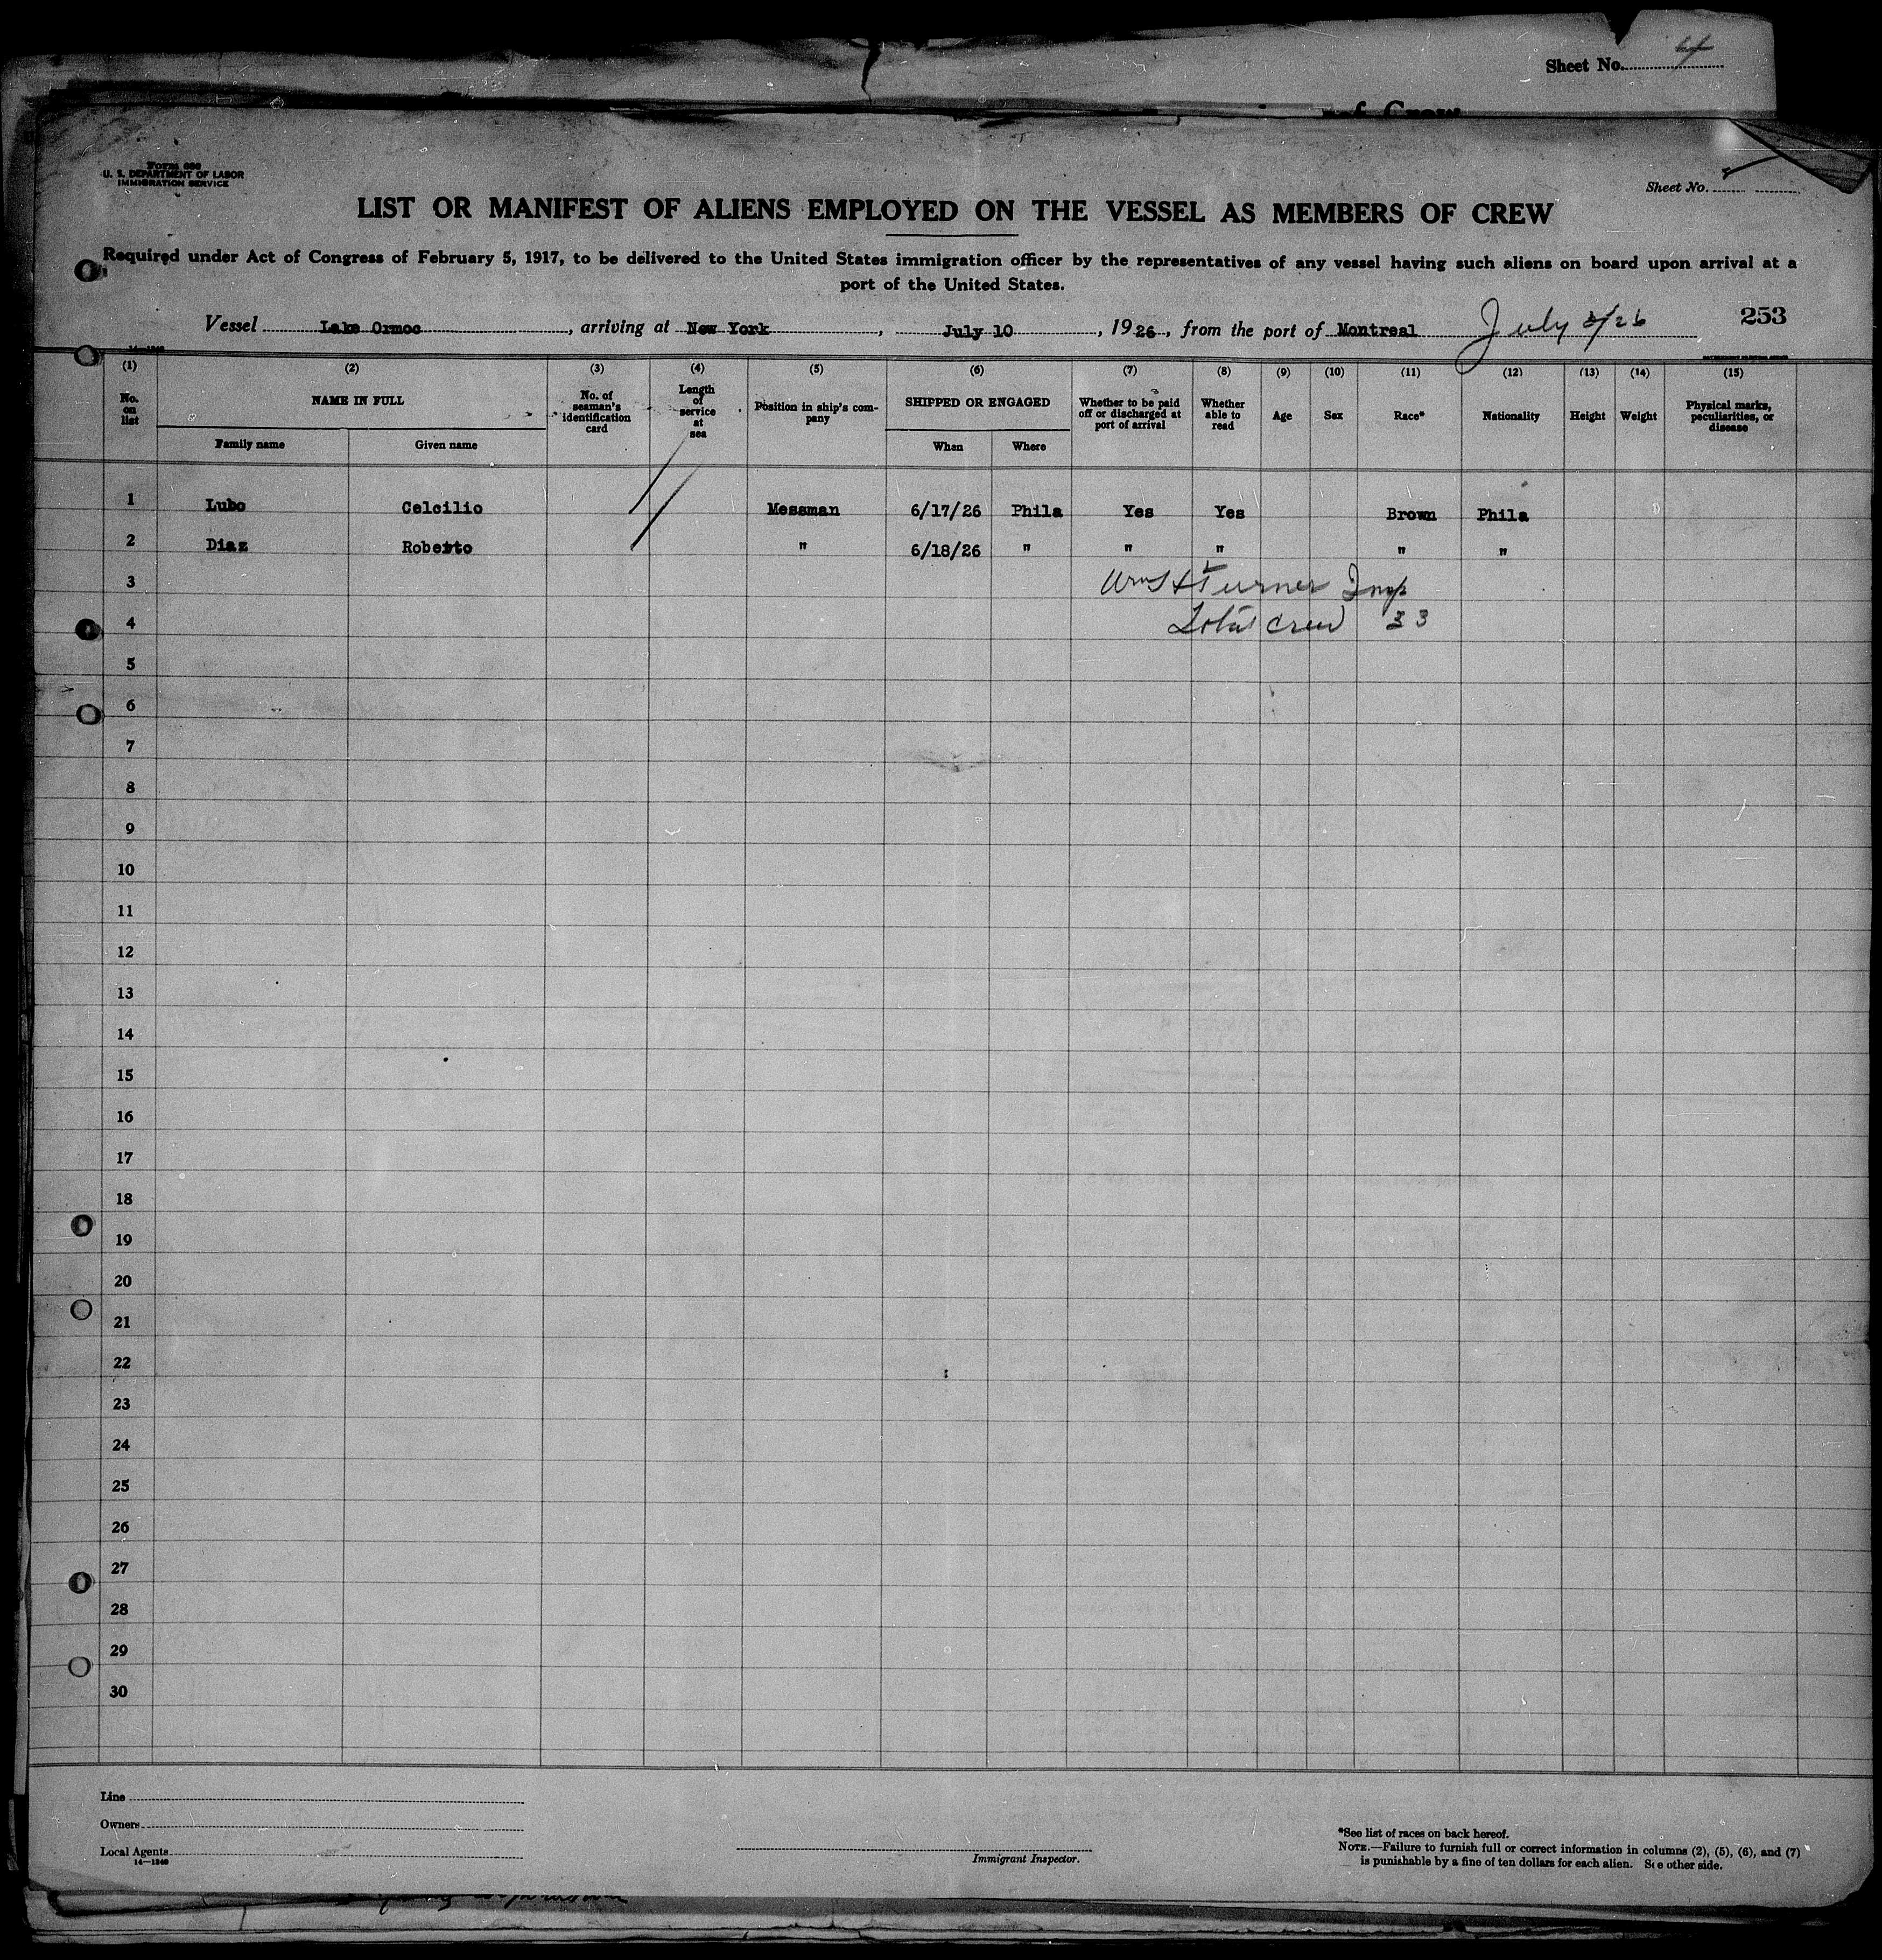 Sheet No. 4
of Crew
Form 680
U. S. DEPARTMENT OF LABOR
IMMIGRATION SERVICE
Sheet No.
LIST OR MANIFEST OF ALIENS EMPLOYED ON THE VESSEL AS MEMBERS OF CREW
Required under Act of Congress of February 5, 1917, to be delivered to the United States immigration officer by the representatives of any vessel having such aliens on board upon arrival at a
port of the United States.
Vessel Lake Ormoc, arriving at New York, July 10, 1926, from the port of Montreal July 3/26 253
14—1240
(1) (2) (3) (4) (5) (6) (7) (8) (9) (10) (11) (12) (13) (14) (15)
No. on list NAME IN FULL No. of seaman's identification card Length of service at sea Position in ship's company SHIPPED OR ENGAGED Whether to be paid off or discharged at port of arrival Whether able to read Age Sex Race* Nationality Height Weight Physical marks, peculiarities, or disease
Family name Given name When Where
1 Lubo Celcilio Messman 6/17/26 Phila Yes Yes Brown Phila
2 Diaz Roberto " 6/18/26 " " " " "
3 Wm H Turner Insp
4 Total Crew 33
5
6
7
8
9
10
11
12
13
14
15
16
17
18
19
20
21
22
23
24
25
26
27
28
29
30
Line
Owners
Local Agents
14—1240
Immigrant Inspector.
*See list of races on back hereof.
NOTE.—Failure to furnish full or correct information in columns (2), (5), (6), and (7)
is punishable by a fine of ten dollars for each alien. See other side.